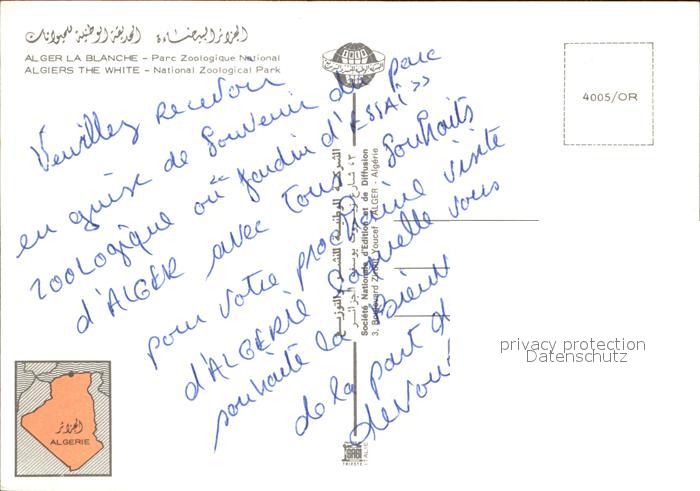 الجزائر البيضاء الحديقة الوطنية للحيوانات
ALGER LA BLANCHE – Parc Zoologique National
ALGIERS THE WHITE – National Zoological Park
4005/OR
Veuillez recevoir
en guise de souvenir du parc
zoologique ou "Jardin d'ESSAÏ>>
d'ALGER avec tous souhaits
pour votre prochaine visite
d'ALGÉRIE laquelle vous
souhaite la Bien
de la part d
devou
الشركة الوطنية للنشر والتوزيع
Société Nationale d'Edition et de Diffusion
3, Boulevard Zirout Youcef - ALGER - Algérie
privacy protection
Datenschutz
الجزائر
ALGERIE
TRIESTE
ITALIE